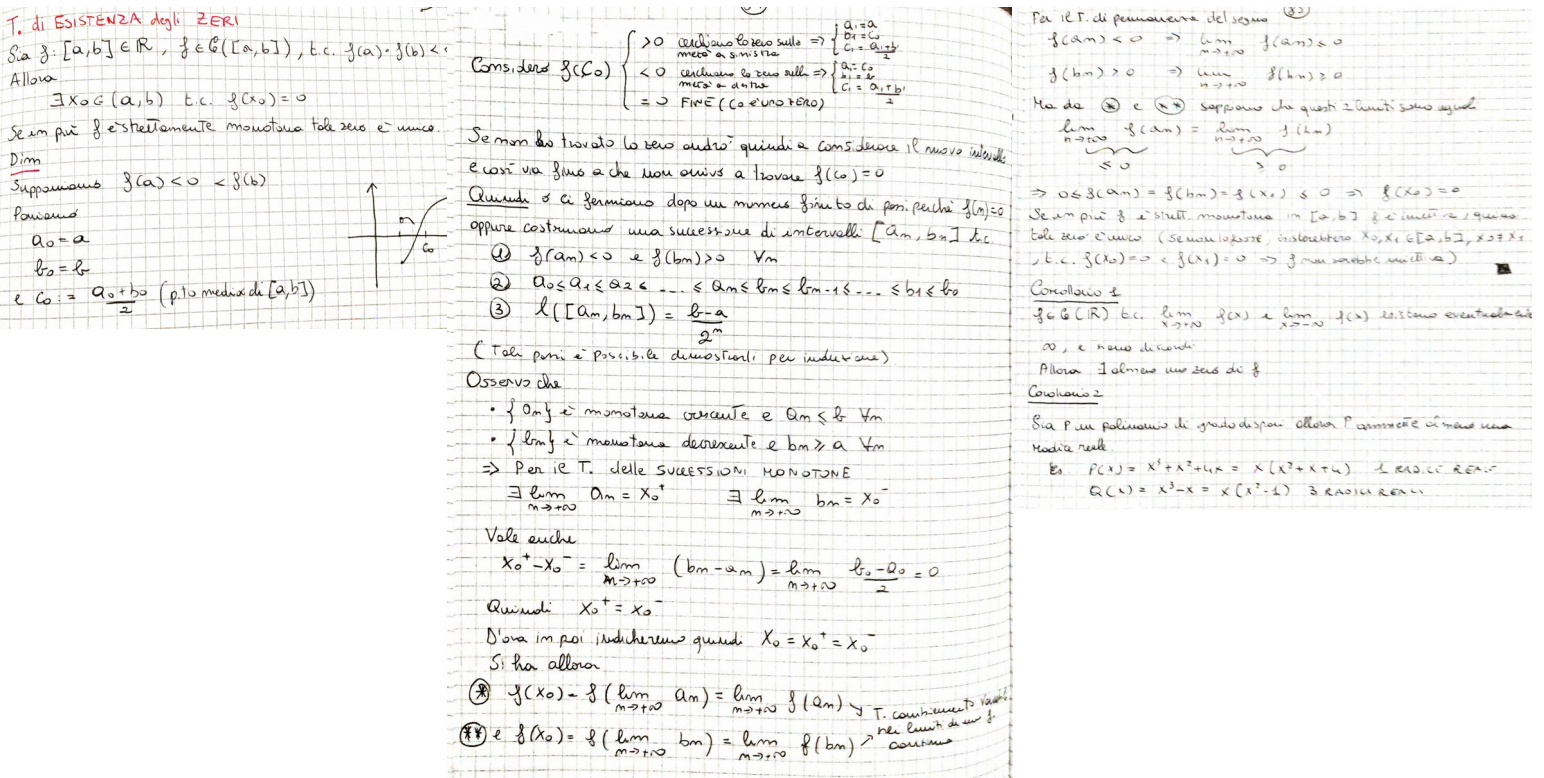 T. di ESISTENZA degli ZERI
Sia f: [a,b] ∈ ℝ, f ∈ C([a,b]), t.c. f(a)·f(b) <
Allora
∃ x₀ ∈ (a,b) t.c. f(x₀) = 0
Se in più f è strettamente monotona tale zero è unico.
Dim
Supponiamo f(a) < 0 < f(b)
Poniamo
a₀ = a
b₀ = b
C₀
e C₀ := (a₀+b₀)/2 (p.to medio di [a,b])
Considero f(C₀)
>0 cerchiamo lo zero sulla metà a sinistra => { a₁ = a b₁ = C₀ C₁ = (a₁+b₁)/2
<0 cerchiamo lo zero sulla metà a destra => { a₁ = C₀ b₁ = b C₁ = (a₁+b₁)/2
= 0 FINE (C₀ È UNO ZERO)
Se non ho trovato lo zero andrò quindi a considerare il nuovo intervallo
e così via fino a che non arrivo a trovare f(C₀) = 0
Quindi o ci fermiamo dopo un numero finito di passi perché f(n)=0
oppure costruiamo una successione di intervalli [aₙ, bₙ] t.c.
① f(aₙ) < 0 e f(bₙ) > 0 ∀n
② a₀ ≤ a₁ ≤ a₂ ≤ ... ≤ aₙ ≤ bₙ ≤ bₙ₋₁ ≤ ... ≤ b₁ ≤ b₀
③ l([aₙ, bₙ]) = (b-a)/2ⁿ
(Tali passi è possibile dimostrarli per induzione)
Osservo che
• {aₙ} è monotona crescente e aₙ ≤ b ∀n
• {bₙ} è monotona decrescente e bₙ ≥ a ∀n
=> Per il T. delle SUCCESSIONI MONOTONE
∃ lim n→+∞ aₙ = x₀⁺ ∃ lim n→+∞ bₙ = x₀⁻
Vale anche
x₀⁺ - x₀⁻ = lim n→+∞ (bₙ - aₙ) = lim n→+∞ (b₀-a₀)/2 = 0
Quindi x₀⁺ = x₀⁻
D'ora in poi indicheremo quindi x₀ = x₀⁺ = x₀⁻
Si ha allora
(*) f(x₀) = f(lim n→+∞ aₙ) = lim n→+∞ f(aₙ)
(**) e f(x₀) = f(lim n→+∞ bₙ) = lim n→+∞ f(bₙ)
T. cambiamento variabile
nei limiti di una f.
continua
Per il T. di permanenza del segno
f(aₙ) < 0 => lim n→+∞ f(aₙ) ≤ 0
f(bₙ) > 0 => lim n→+∞ f(bₙ) ≥ 0
Ma da (*) e (**) sappiamo che questi 2 limiti sono uguali
lim n→+∞ f(aₙ) = lim n→+∞ f(bₙ)
≤ 0 ≥ 0
=> 0 ≤ f(aₙ) = f(bₙ) = f(x₀) ≤ 0 => f(x₀) = 0
Se in più f è strett. monotona in [a,b] f è iniettiva, quindi
tale zero è unico (se non lo fosse, esisterebbero x₀, x₁ ∈ [a,b], x₀ ≠ x₁
, t.c. f(x₀) = 0 e f(x₁) = 0 => f non sarebbe iniettiva)
Corollario 1
f ∈ C(ℝ) t.c. lim x→+∞ f(x) e lim x→-∞ f(x) esistano eventualmente
∞, e siano discordi
Allora ∃ almeno uno zero di f
Corollario 2
Sia P un polinomio di grado dispari allora P ammette almeno una
radice reale.
Es. P(x) = x³+x²+4x = x(x²+x+4) 1 RADICE REALE
Q(x) = x³-x = x(x²-1) 3 RADICI REALI